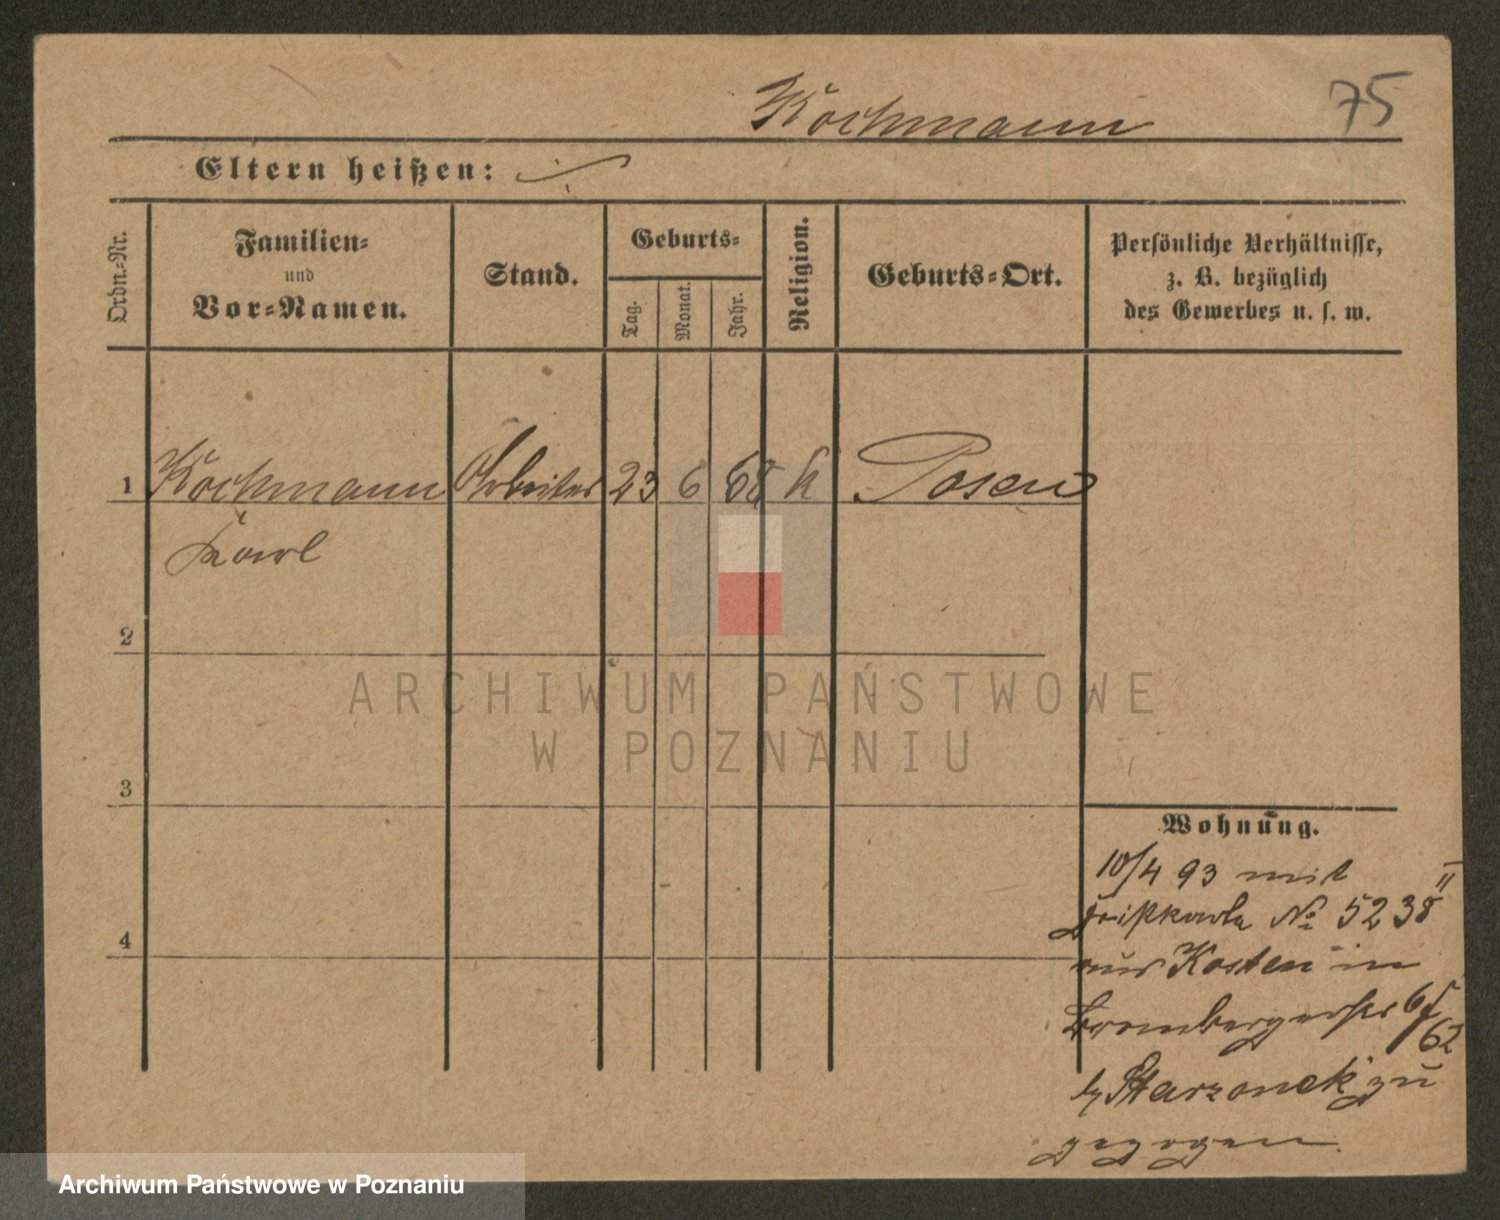 Kochmann
75
Eltern heißen: ./.
Ordn.-Nr.
Familien-
und
Vor-Namen.
Stand.
Geburts-
Tag.
Monat.
Jahr.
Religion.
Geburts-Ort.
Persönliche Verhältnisse,
z. B. bezüglich
des Gewerbes u. s. w.
1 Kochmann Arbeiter 23 6 68 k Posen
Karl
2
3
4
Wohnung.
10/4 93 mit
No 5238
aus Kosten in
Brombergerstr
62
b/ zu
gezogen
ARCHIWUM PAŃSTWOWE
W POZNANIU
Archiwum Państwowe w Poznaniu